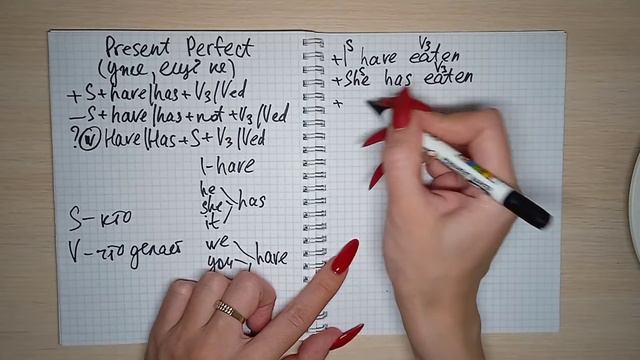 Present Perfect
(уже, ещё не)
+ S + have/has + V3/Ved
– S + have/has + not + V3/Ved
? (W) Have/Has + S + V3/Ved
I - have
he
she has
it
S – кто
V – что делает
we
you have
S V3
+ I have eaten
S V3
+ She has eaten
+